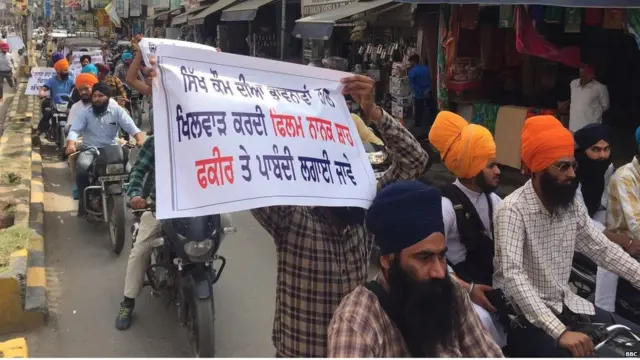 ਸਿੱਖ ਕੌਮ ਦੀਆਂ ਭਾਵਨਾਵਾਂ ਨਾਲ
ਖਿਲਵਾੜ ਕਰਦੀ ਫਿਲਮ ਨਾਨਕ ਸ਼ਾਹ
ਫਕੀਰ ਤੇ ਪਾਬੰਦੀ ਲਗਾਈ ਜਾਵੇ
BBC